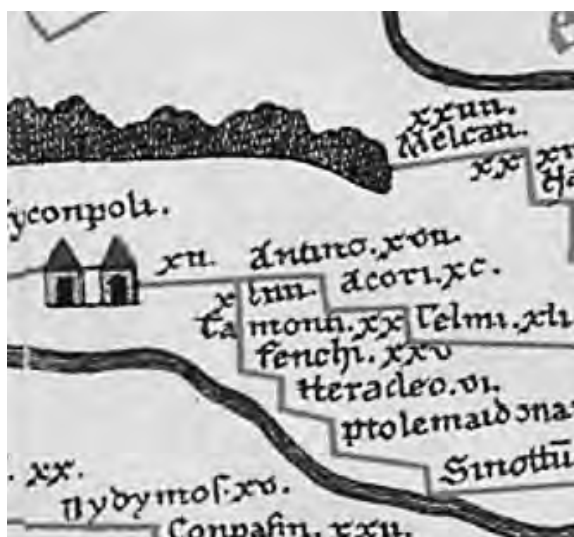 xxıııı.
Melcan.
xx
yconpoli.
xıı. Antino. xvıı.
Acori. xc.
Tamonti. xx
Celmi. xlı
fenchi. xxv
Heracleo. vı.
ptolemaidonar
Sinottū
. xx.
Dydymos. xv.
Conpasin. xxıı.